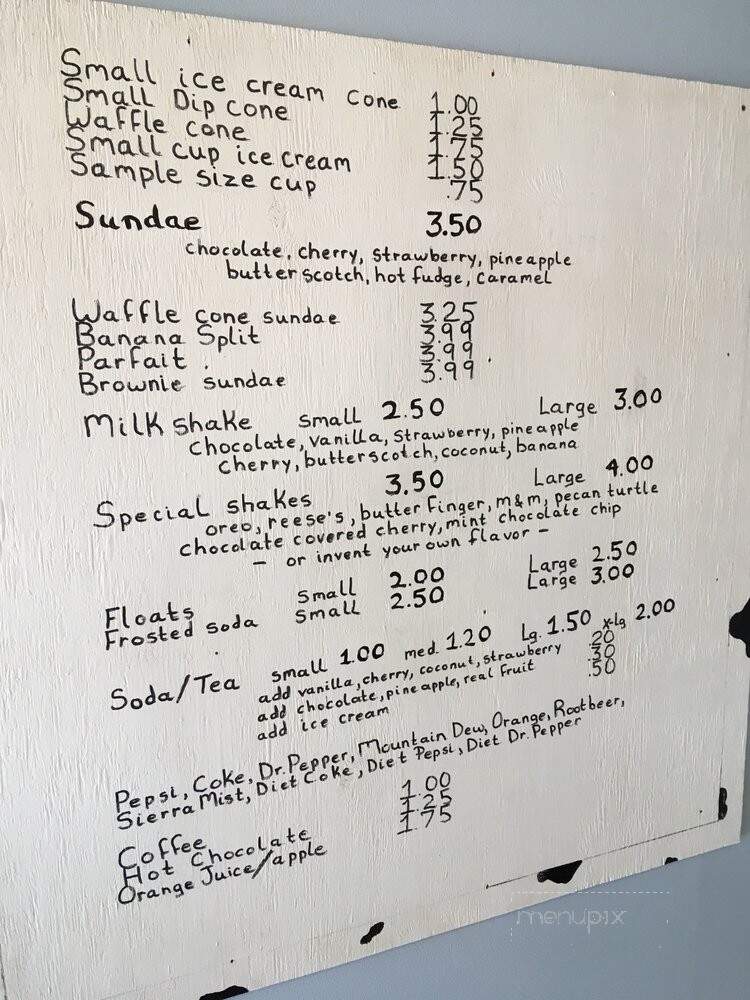 Small ice cream cone 1.00
Small Dip cone 1.25
Waffle cone 1.75
Small cup ice cream 1.50
Sample size cup .75
Sundae 3.50
chocolate, cherry, strawberry, pineapple
butterscotch, hot fudge, caramel
Waffle cone sundae 3.25
Banana Split 3.99
Parfait 3.99
Brownie sundae 3.99
Milkshake small 2.50 Large 3.00
Chocolate, vanilla, strawberry, pineapple
cherry, butterscotch, coconut, banana
Special shakes 3.50 Large 4.00
oreo, reese's, butter finger, m&m, pecan turtle
chocolate covered cherry, mint chocolate chip
- or invent your own flavor -
Floats Small 2.00 Large 2.50
Frosted soda small 2.50 Large 3.00
Soda/Tea small 1.00 med. 1.20 Lg. 1.50 x-lg 2.00
add vanilla, cherry, coconut, strawberry .20
add chocolate, pineapple, real fruit .30
add ice cream .50
Pepsi, Coke, Dr. Pepper, Mountain Dew, Orange, Rootbeer,
Sierra Mist, Diet Coke, Diet Pepsi, Diet Dr. Pepper
Coffee 1.00
Hot Chocolate 1.25
Orange Juice/apple 1.75
menupix